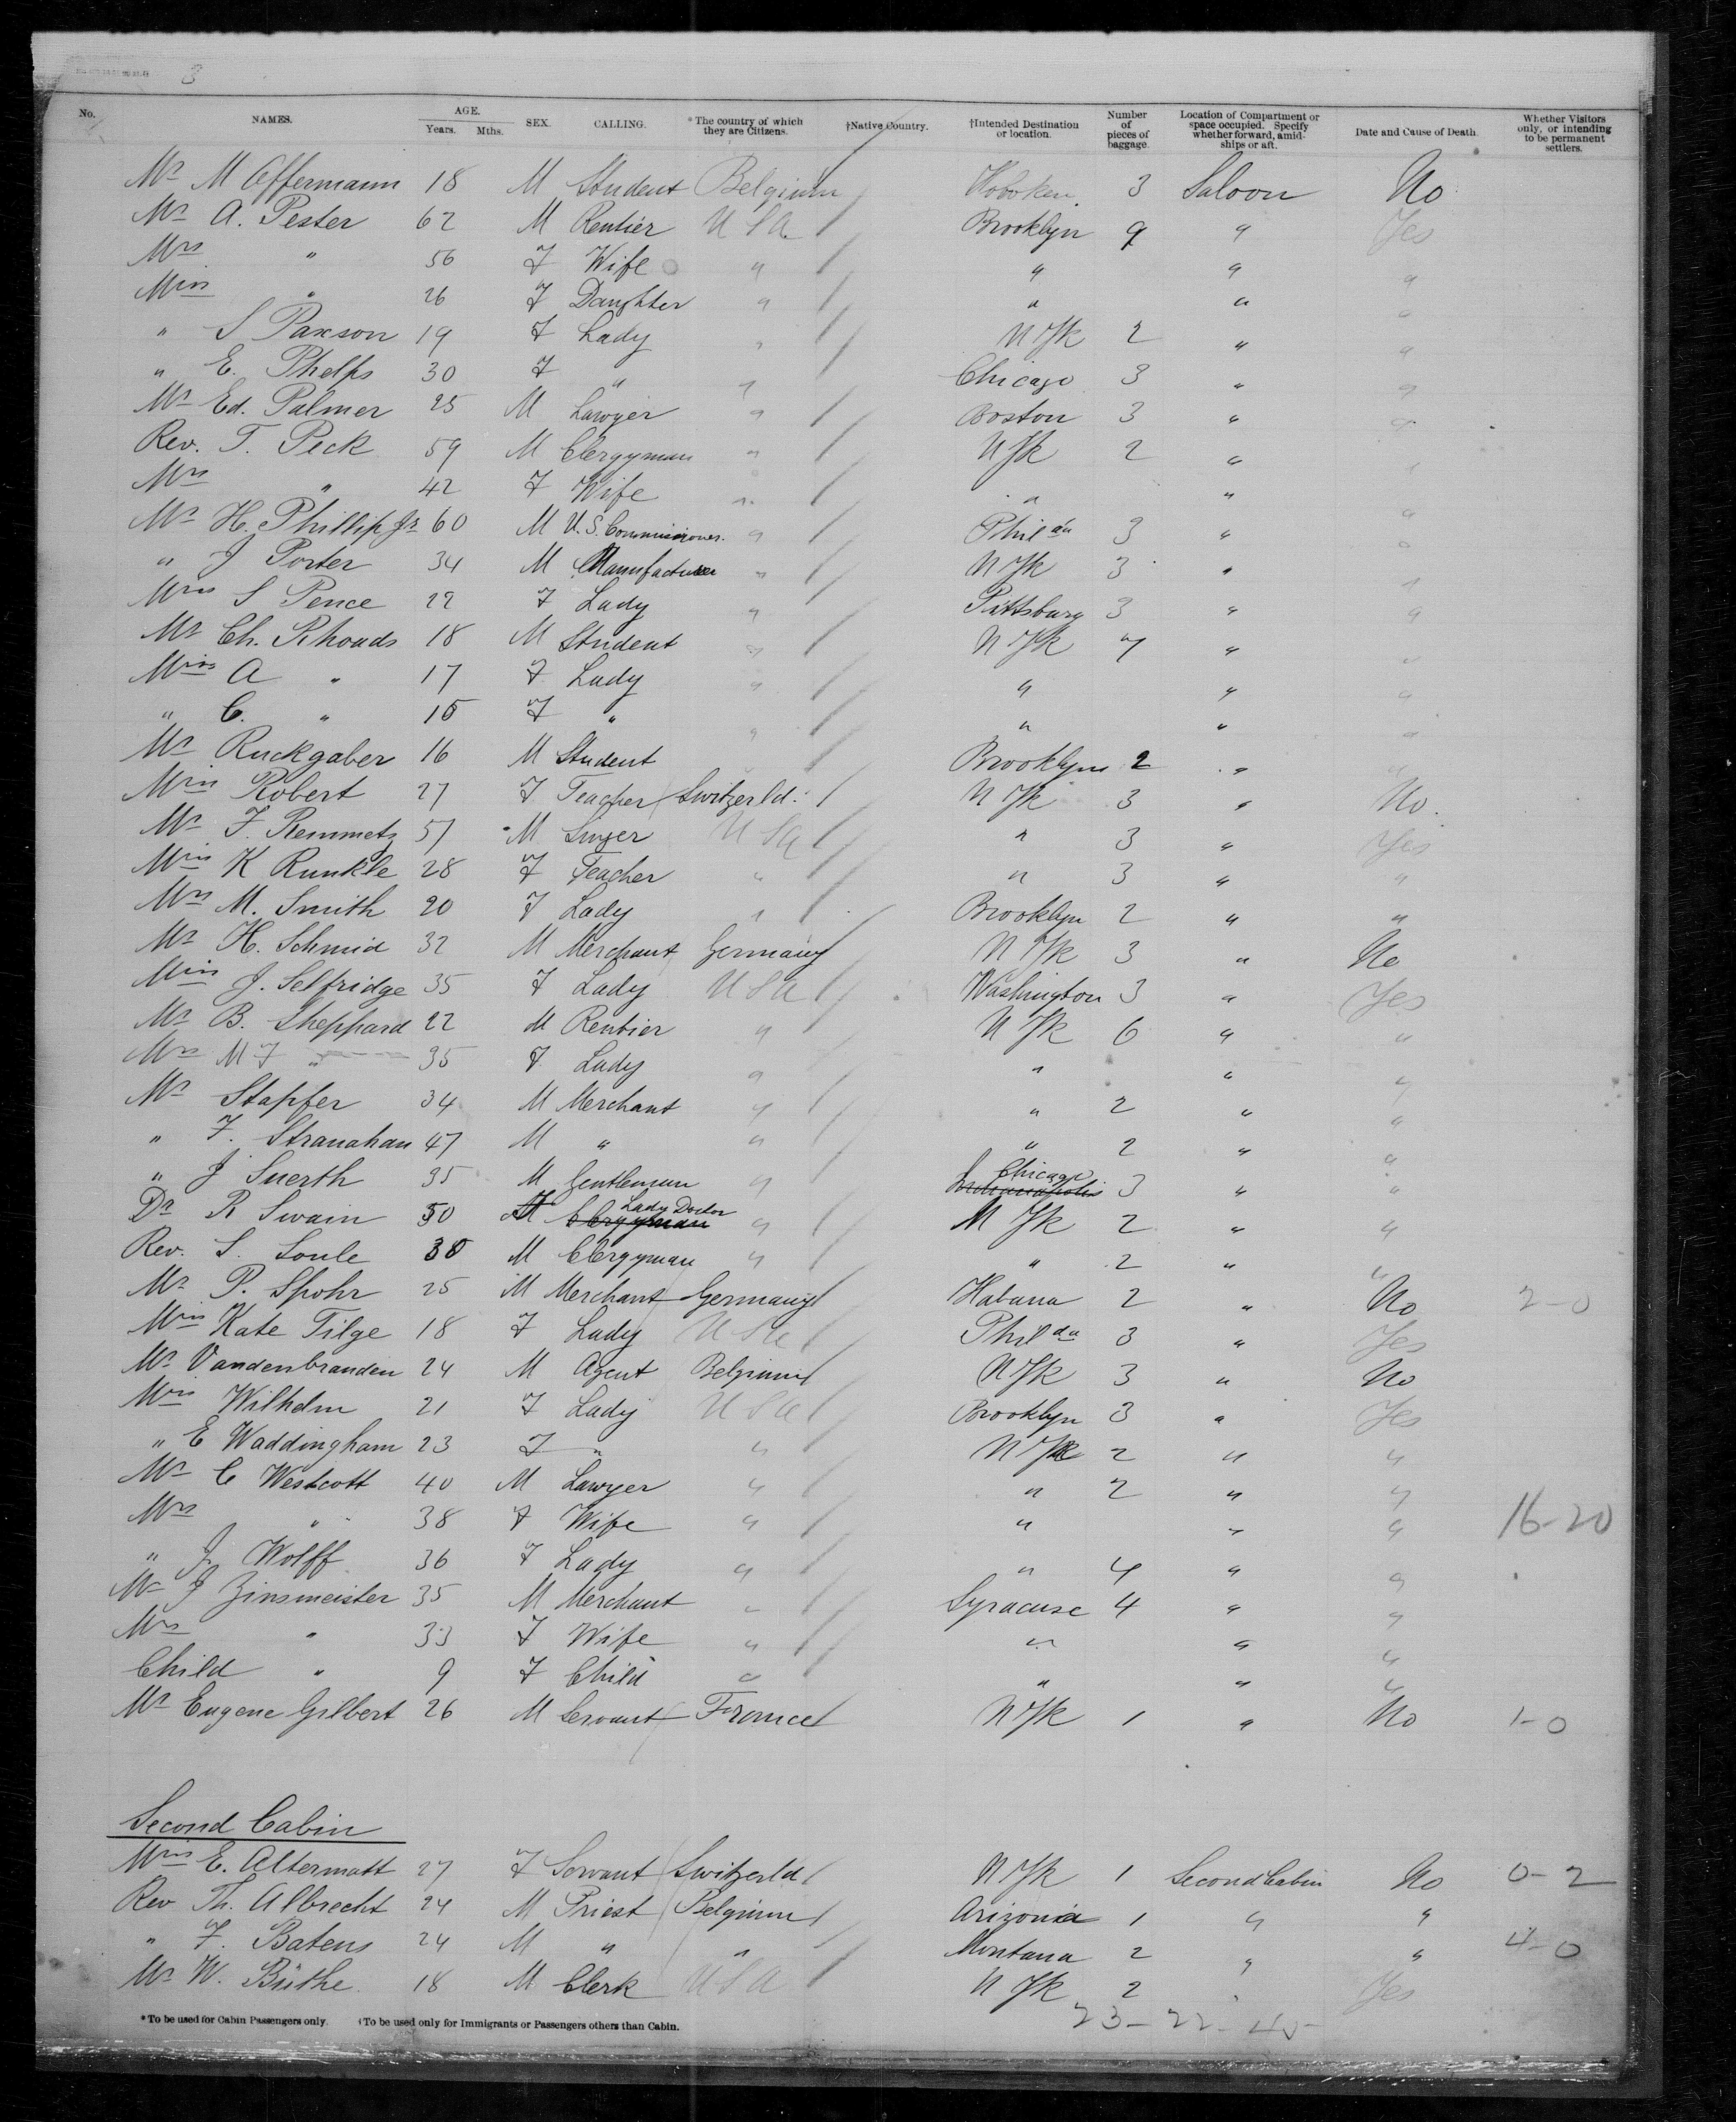 3
No. NAMES. AGE. Years. Mths. SEX. CALLING. *The country of which they are Citizens. †Native Country. †Intended Destination or location. Number of pieces of baggage. Location of Compartment or space occupied. Specify whether forward, amidships or aft. Date and Cause of Death. Whether Visitors only, or intending to be permanent settlers.
Mr M Offermann 18 M Student Belgium Hoboken 3 Saloon No
Mr A. Pester 62 M Rentier U S A Brooklyn 9 " Yes
Mrs " 56 F Wife " " " "
Miss " 26 F Daughter " " " "
" S Paxson 19 F Lady " N Yk 2 " "
" E. Phelps 30 F " " Chicago 3 " "
Mr Ed. Palmer 25 M Lawyer " Boston 3 " "
Rev. T. Peck 59 M Clergyman " N Yk 2 " "
Mrs " 42 F Wife " " " "
Mr H. Phillip Jr 60 M U.S. Commissioner. " Philda 3 " "
" J Porter 34 M Manufacturer " N Yk 3 " "
Miss S Pence 22 F Lady " Pittsburg 3 " "
Mr Ch. Rhoads 18 M Student " N Yk 7 " "
Miss A " 17 F Lady " " " "
" C. " 15 F " " " " "
Mr Ruckgaber 16 M Student Brooklyn 2 " "
Miss Robert 27 F Teacher Switzerld. N Yk 3 " No.
Mr F. Remmetz 57 M Singer U S A " 3 " Yes
Miss K Runkle 28 F Teacher " " 3 " "
Mrs M. Smith 20 F Lady " Brooklyn 2 " "
Mr H. Schmid 32 M Merchant Germany N Yk 3 " No
Miss J. Selfridge 35 F Lady U S A Washington 3 " Yes
Mr B. Sheppard 22 M Rentier " N Yk 6 " "
Mrs M F " 35 F Lady " " " "
Mr Stapfer 34 M Merchant " " 2 " "
" F. Stranahan 47 M " " " 2 " "
" J Suerth 35 M Gentleman " Chicago 3 " "
Dr R Swain 50 F Clergyman Lady Doctor " N Yk 2 " "
Rev. S. Soule 38 M Clergyman " " 2 " "
Mr P. Spohr 25 M Merchant Germany Habana 2 " No 2-0
Miss Kate Tilge 18 F Lady U S A Philda 3 " Yes
Mr Vandenbranden 24 M Agent Belgium N Yk 3 " No
Miss Wilhelm 21 F Lady U S A Brooklyn 3 " Yes
" E Waddingham 23 F " " N Yk 2 " "
Mr C Westcott 40 M Lawyer " " 2 " "
Mrs " 38 F Wife " " " " 16-20
" J. Wolff 36 F Lady " " 4 " "
Mr J Zinsmeister 35 M Merchant " Syracuse 4 " "
Mrs " 33 F Wife " " " "
Child " 9 F Child " " " "
Mr Eugene Gilbert 26 M Servant France N Yk 1 " No 1-0
Second Cabin
Miss E. Altermatt 27 F Servant Switzerld N Yk 1 Second Cabin No 0-2
Rev Th. Albrecht 24 M Priest Belgium Arizona 1 " "
" F. Batens 24 M " " Montana 2 " " 4-0
Mr W. Büthe 18 M Clerk U S A N Yk 2 " Yes
23-22-45
*To be used for Cabin Passengers only. †To be used only for Immigrants or Passengers others than Cabin.